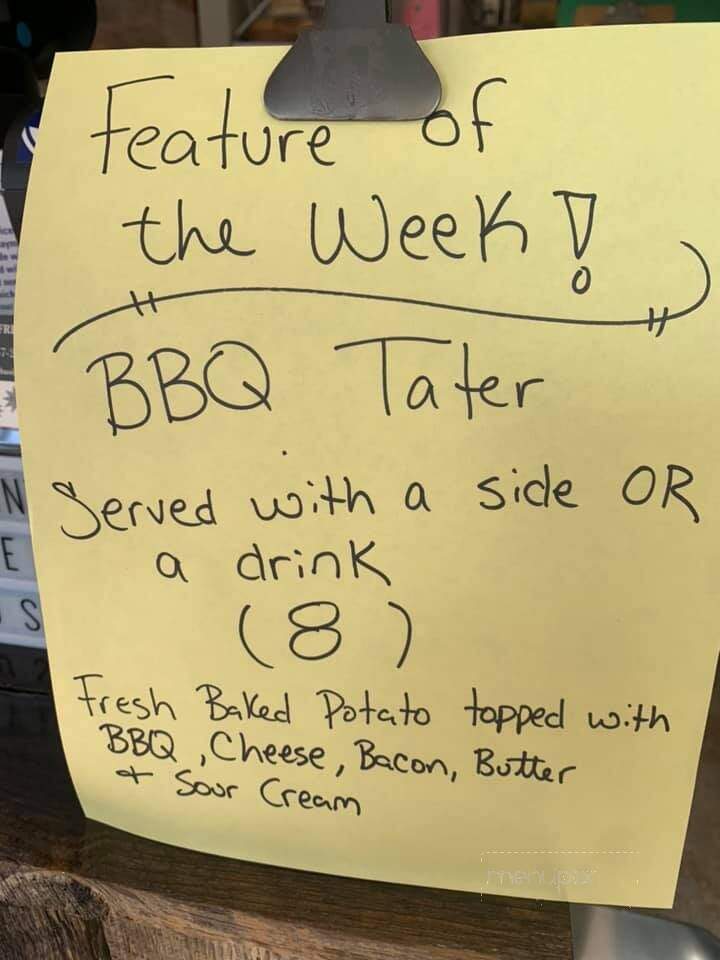 Feature of
the Week!
BBQ Tater
Served with a side OR
a drink
(8)
Fresh Baked Potato topped with
BBQ, Cheese, Bacon, Butter
+ Sour Cream
menupix